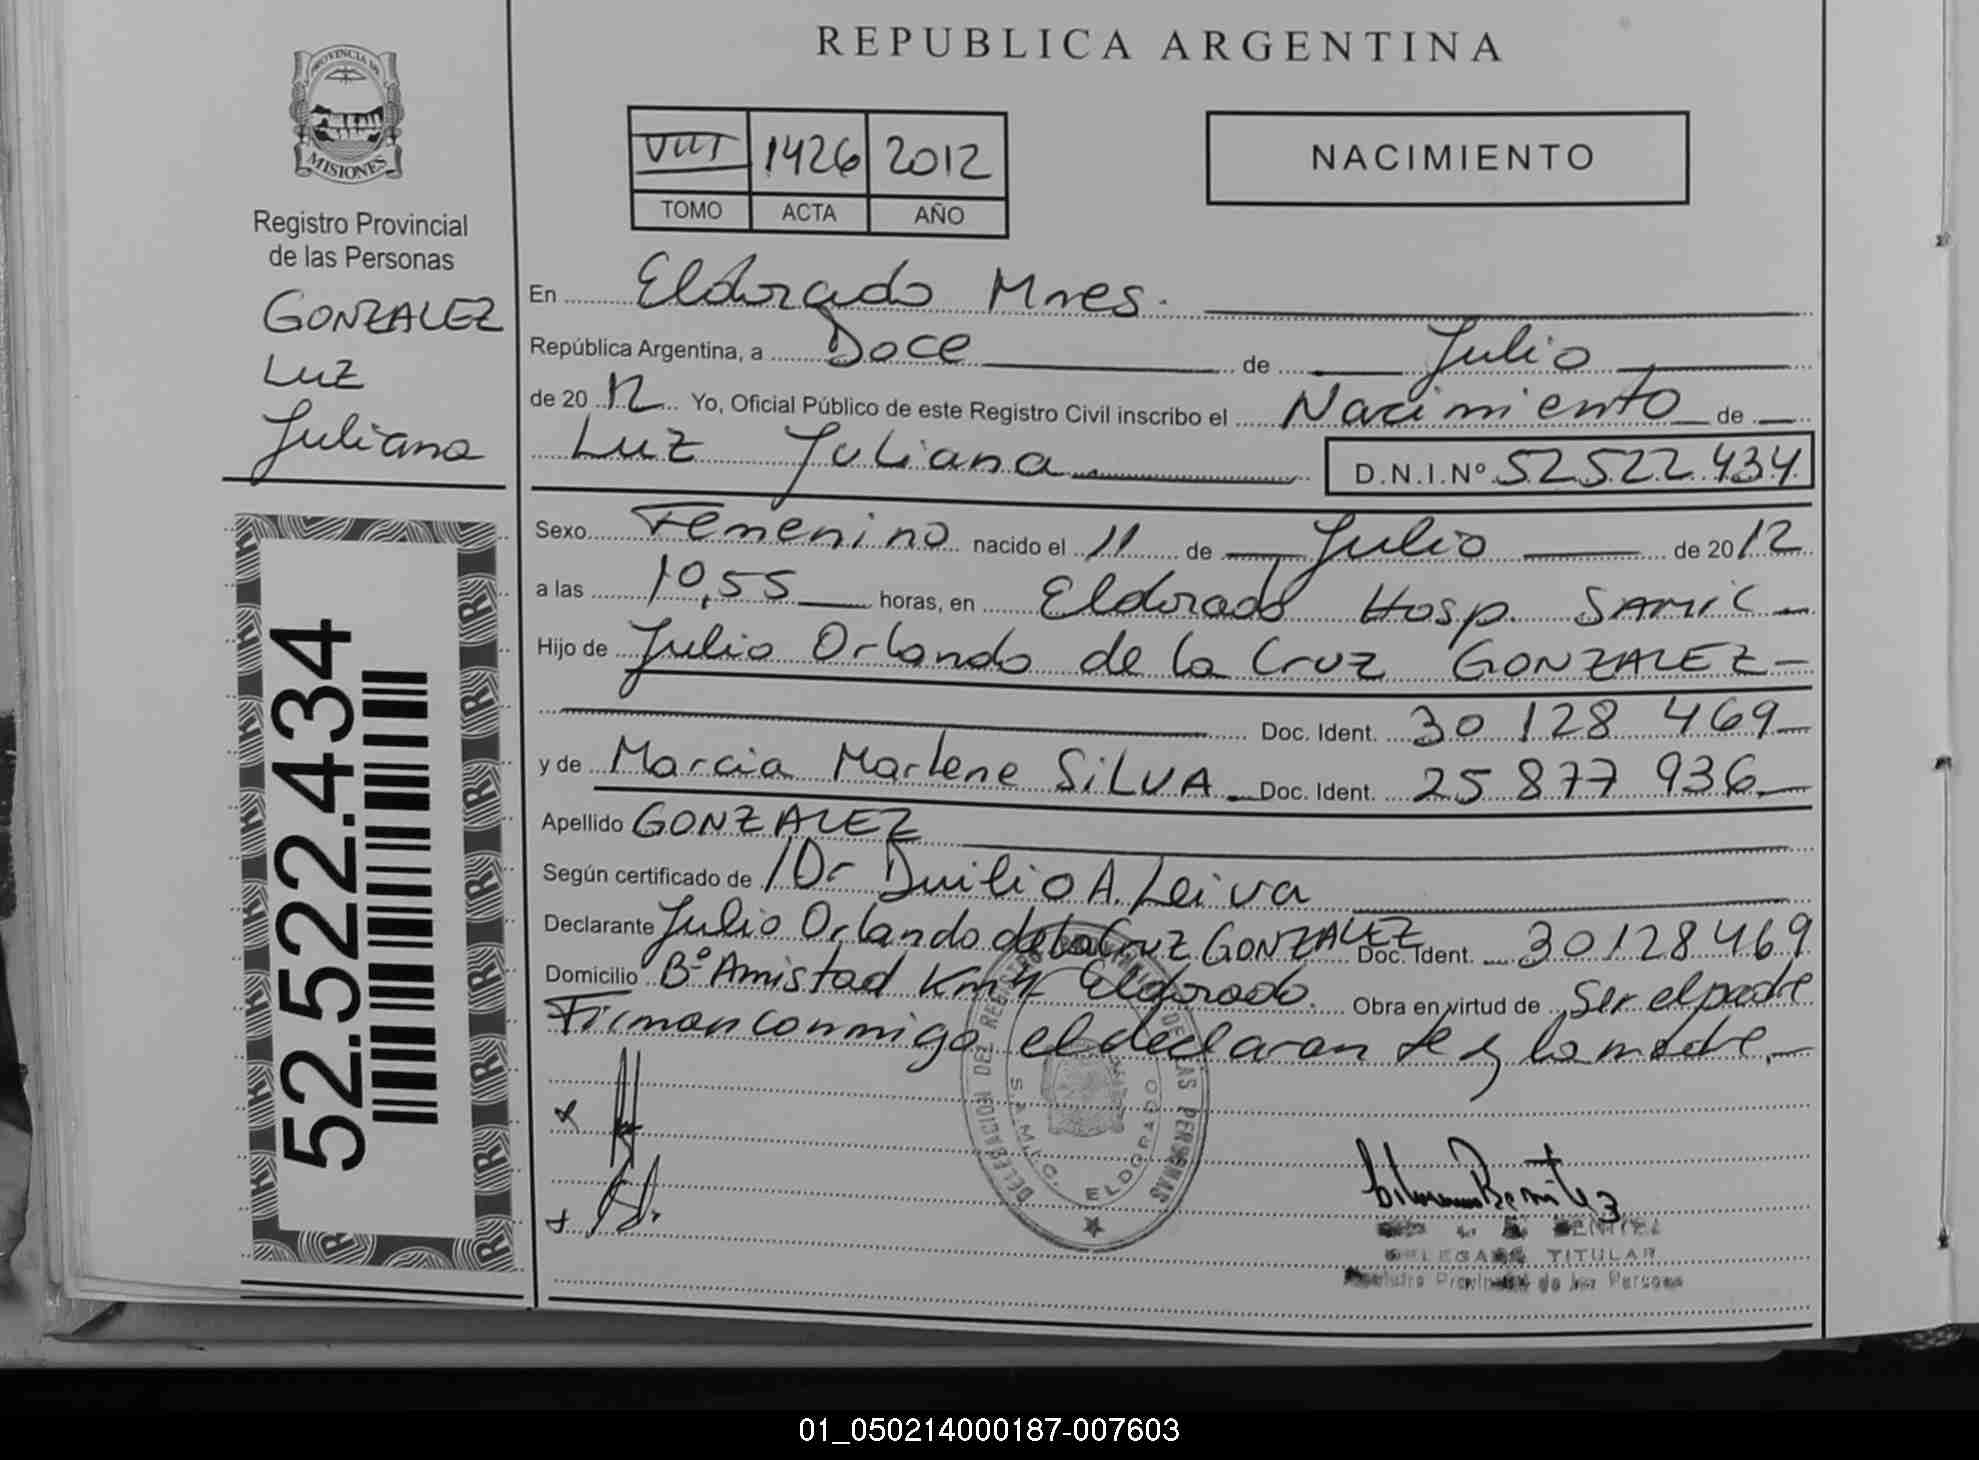 PROVINCIA DE
MISIONES
Registro Provincial
de las Personas
GONZALEZ
LUZ
Juliana
52.522.434
REPUBLICA ARGENTINA
VIII 1426 2012
TOMO ACTA AÑO
NACIMIENTO
En Eldorado Mnes.
República Argentina, a Doce de Julio
de 20 12 Yo, Oficial Público de este Registro Civil inscribo el Nacimiento de
Luz Juliana D.N.I.Nº 52522434
Sexo Femenino nacido el 11 de Julio de 20 12
a las 10,55 horas, en Eldorado Hosp. SAMIC
Hijo de Julio Orlando de la Cruz GONZALEZ
Doc. Ident. 30 128 469
y de Marcia Marlene SILVA Doc. Ident. 25 877 936
Apellido GONZALEZ
Según certificado de Dr Duilio A. Leiva
Declarante Julio Orlando de la Cruz GONZALEZ Doc. Ident. 30128469
Domicilio Bº Amistad Km 4 Eldorado. Obra en virtud de Ser el padre
Firman conmigo el declarante y la madre.
DELEGACION DEL REGISTRO PROVINCIAL DE LAS PERSONAS
S.A.M.I.C. ELDORADO
Benitez
BENITEZ
DELEGADA TITULAR
Registro Provincial de las Personas
01_050214000187-007603